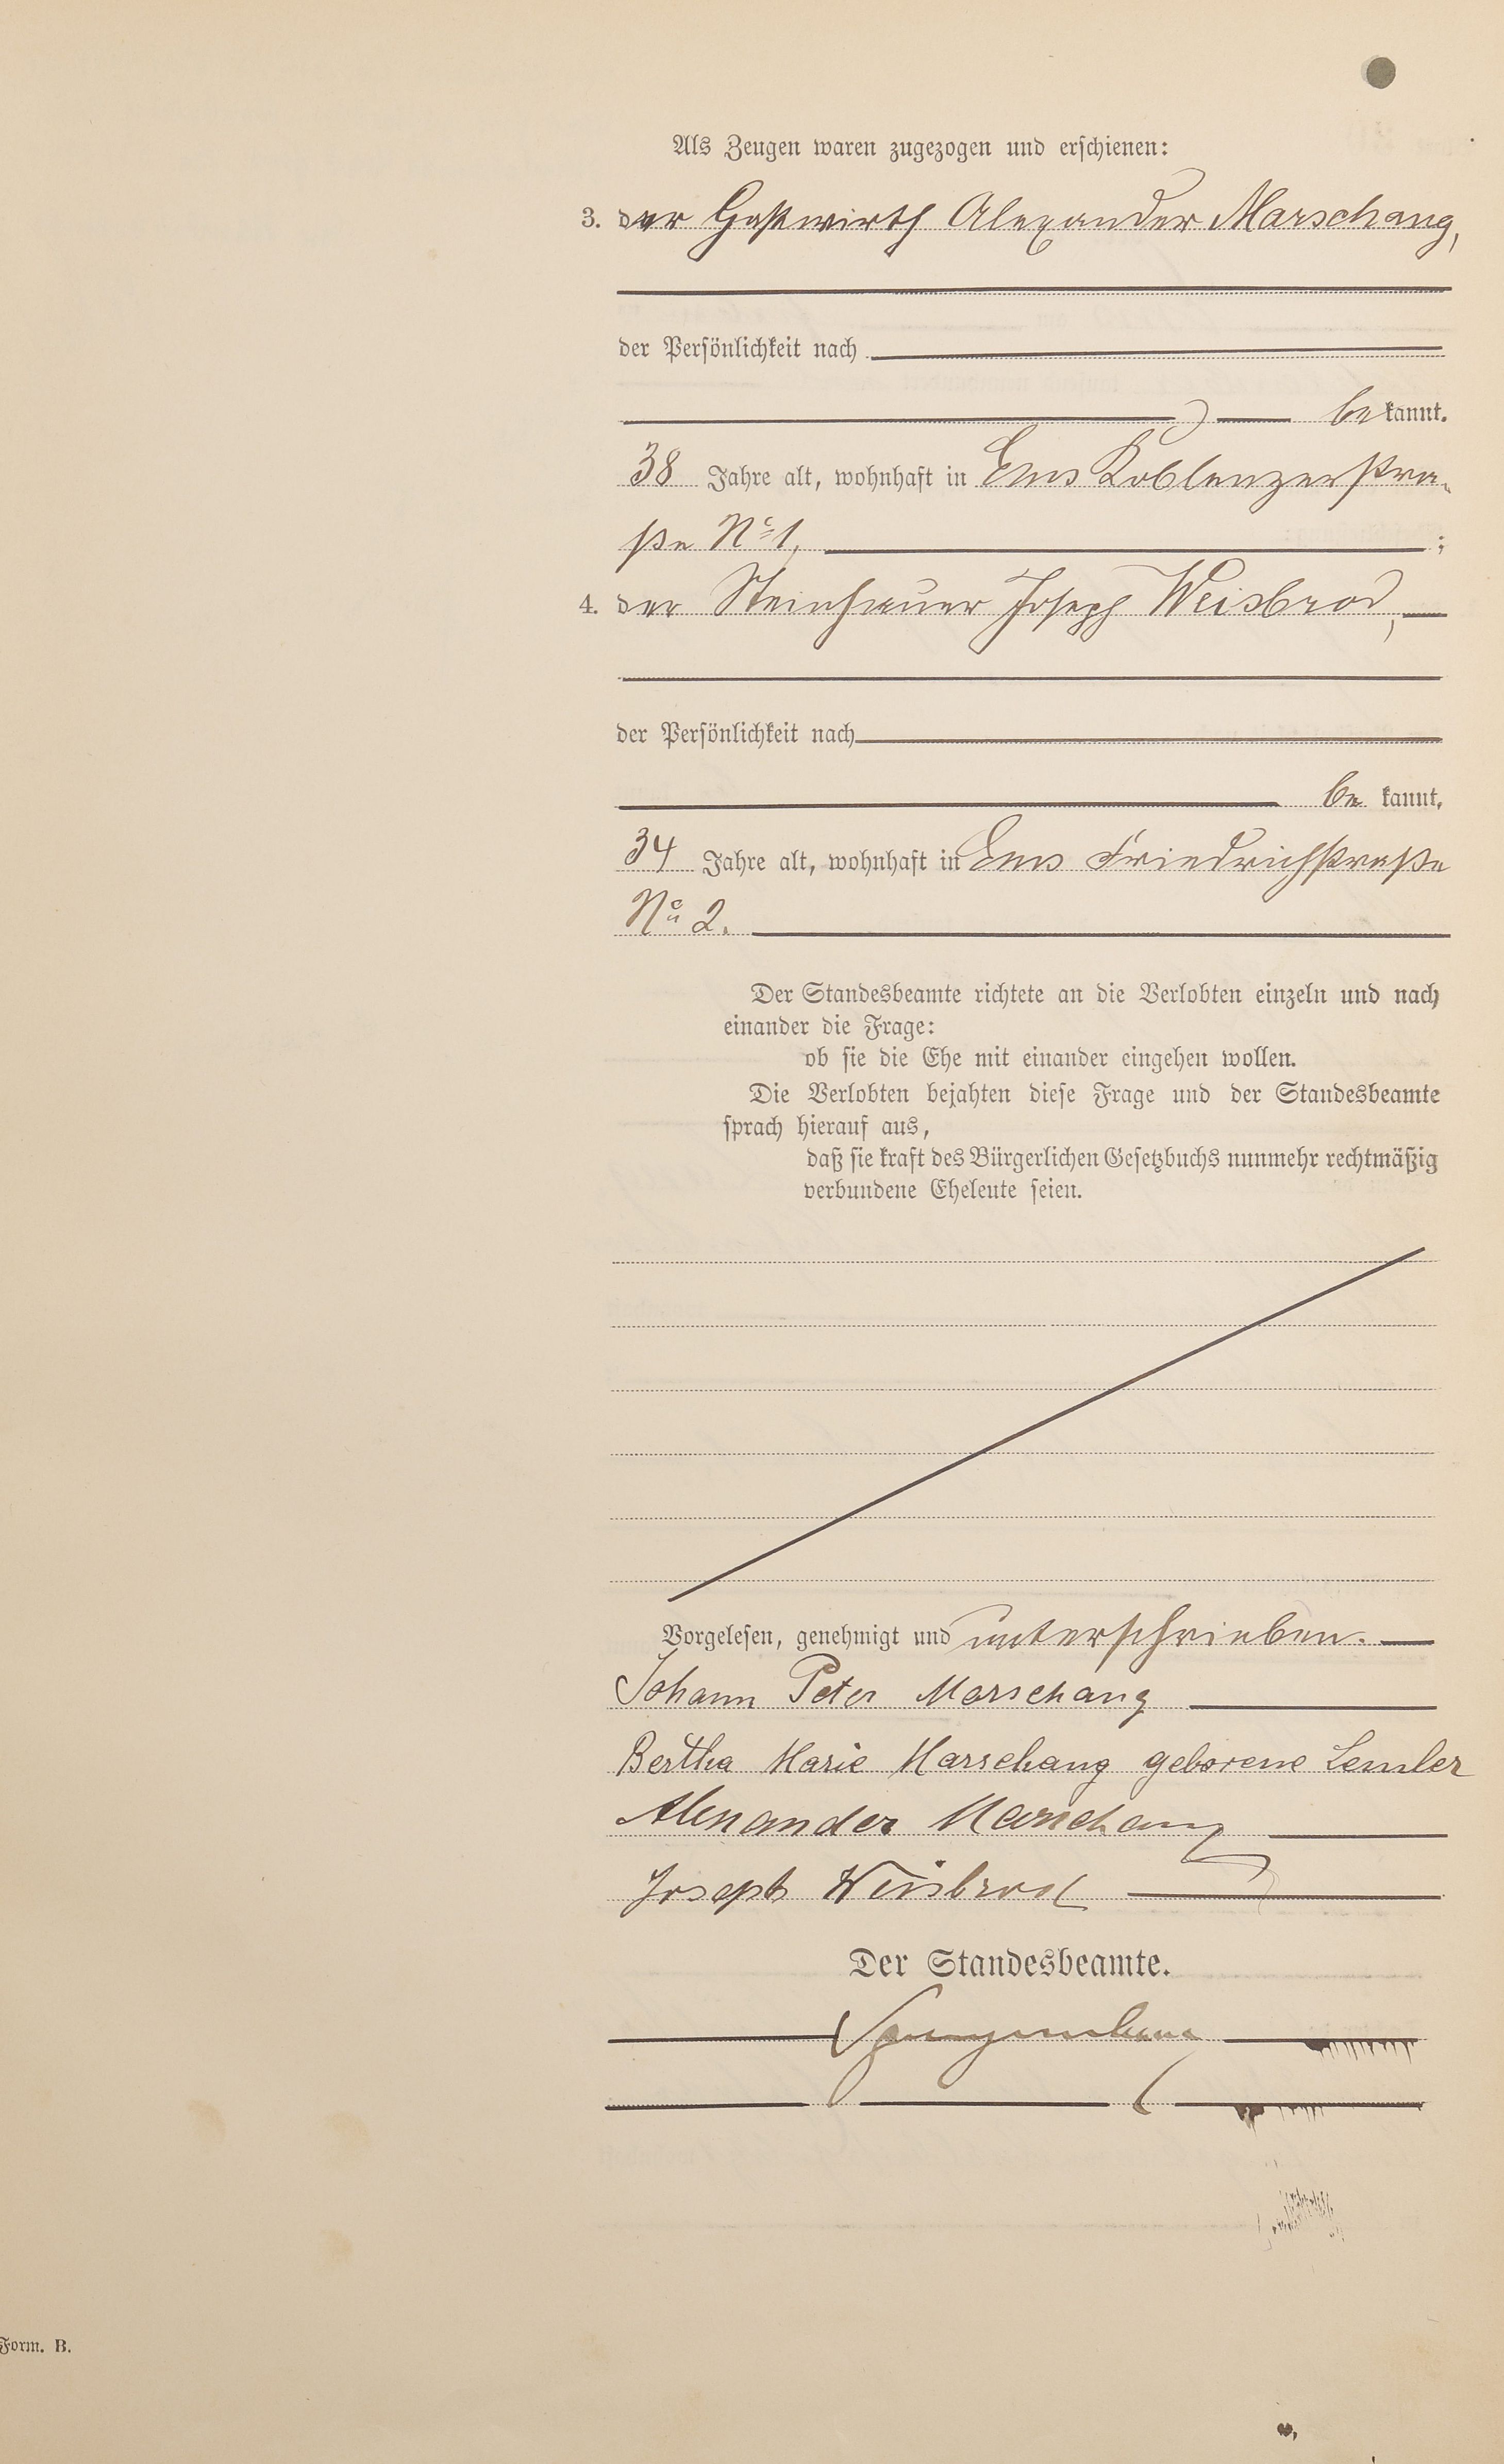 Als Zeugen waren zugezogen und erschienen:
3. der Gastwirth Alexander Marschang,
der Persönlichkeit nach
be kannt.
38 Jahre alt, wohnhaft in Ems Koblenzerstra-
ße No 1, ;
4. der Steinhauer Joseph Weisbrod,
der Persönlichkeit nach
be kannt,
34 Jahre alt, wohnhaft in Ems Friedrichstraße
No 2.
Der Standesbeamte richtete an die Verlobten einzeln und nach
einander die Frage:
ob sie die Ehe mit einander eingehen wollen.
Die Verlobten bejahten diese Frage und der Standesbeamte
sprach hierauf aus,
daß sie kraft des Bürgerlichen Gesetzbuchs nunmehr rechtmäßig
verbundene Eheleute seien.
Vorgelesen, genehmigt und unterschrieben.
Johann Peter Marschang
Bertha Marie Marschang geborene Lemler
Alexander Marschang
Joseph Weisbrod
Der Standesbeamte.
Form. B.